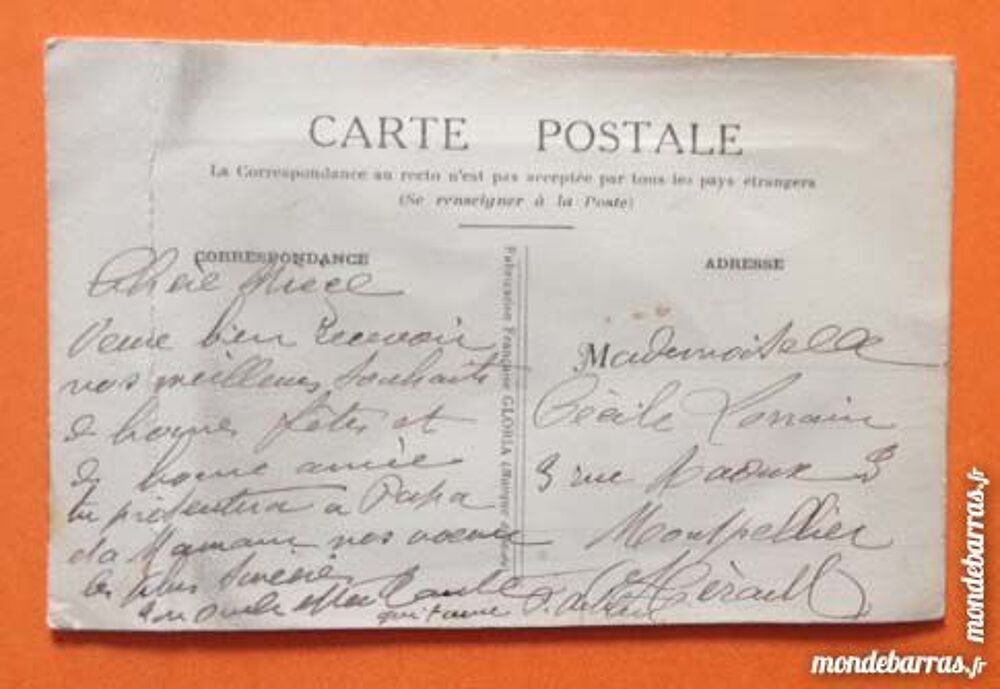 CARTE POSTALE
La Correspondance au recto n'est pas acceptée par tous les pays étrangers
(Se renseigner à la Poste)
CORRESPONDANCE
ADRESSE
Nièce
bien recevoir
vos meilleurs souhaits
de bonnes fêtes et
de bonne année
tu présentera à Papa
Maman nos voeux
les plus sincère
ton oncle et ta Tante
qui t'aime
Fabrication Française GLORIA
Mademoiselle
Cécile Lorrain
3 rue 3
Montpellier
Hérault
mondebarras.fr
mondebarras.fr